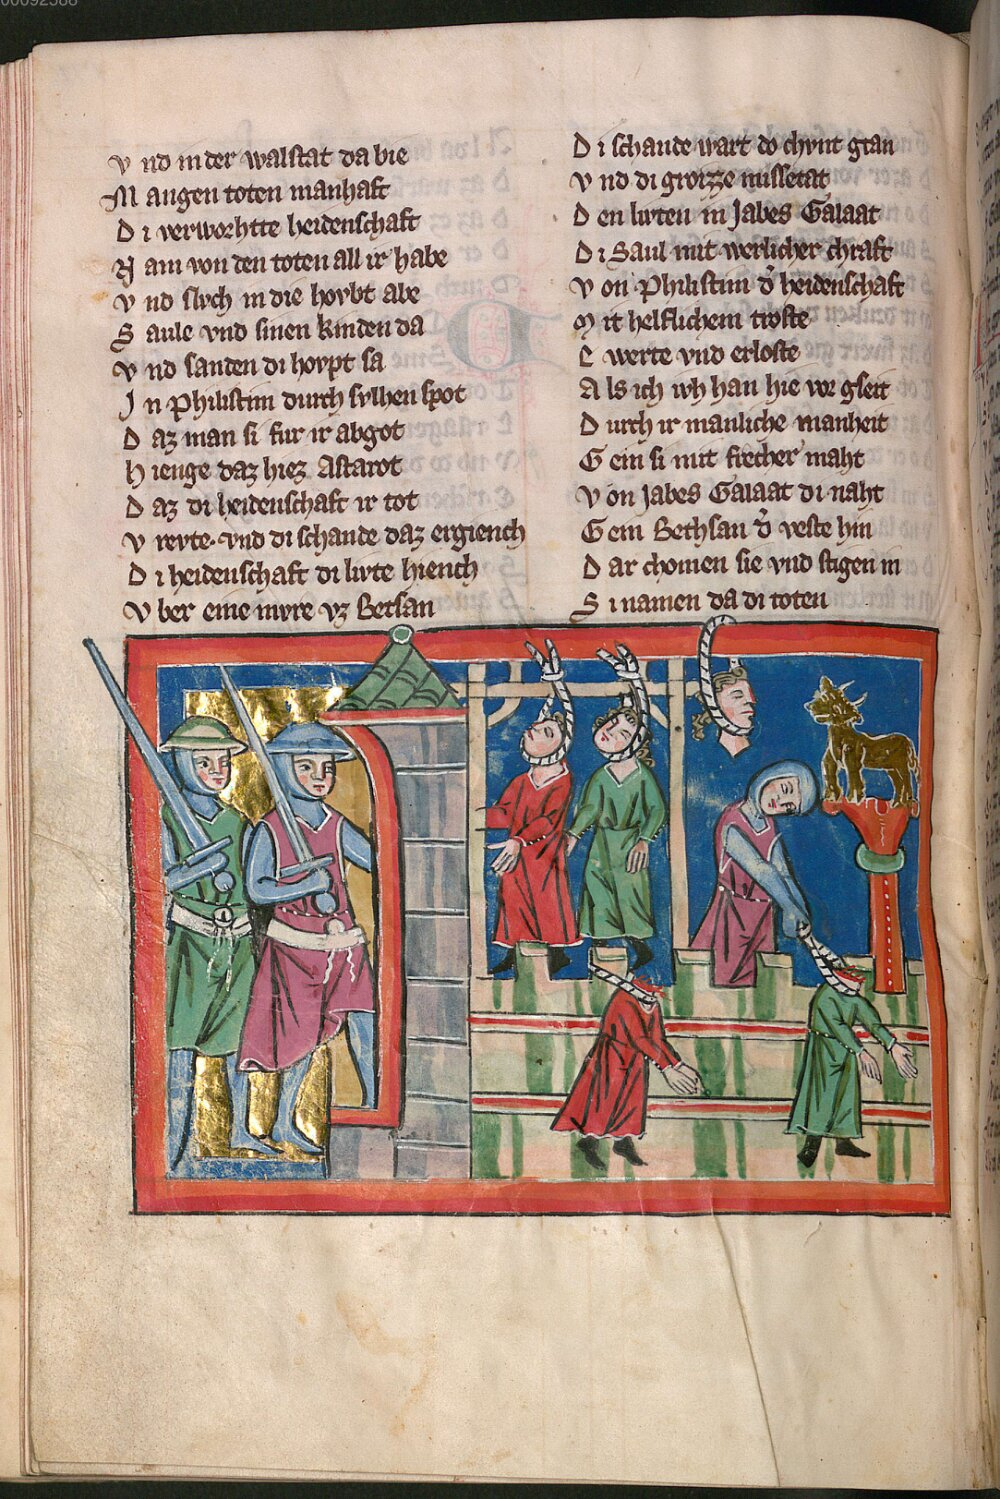 00092588
V nd in der walstat da bie
M angen toten manhaft
D i verworhtte heidenschaft
N am von den toten all ir habe
V nd slvch in die hovbt abe
S aule vnd sinen kinden da
V nd sanden di hovpt sa
I n Philistim durch sylhen spot
D az man si fur ir abgot
H ienge daz hiez Astarot
D az di heidenschaft ir tot
V revte. vnd di schande daz ergiench
D i heidenschaft di livte hiench
V ber eine mvre vz Betsan
D i schande wart do chvnt gtan
V nd di grozze missetat
D en livten in Jabes Galaat
D i Saul mit werlicher chraft
V on Philistim d̾ heidenschaft
M it helflichem troste
E werte vnd erloste
A ls ich ivh han hie vor gseit
D urch ir manliche manheit
G ein si mit frecher maht
V on Jabes Galaat di naht
G ein Bethsan d̾ veste hin
D ar chomen sie vnd stigen in
S i namen da di toten